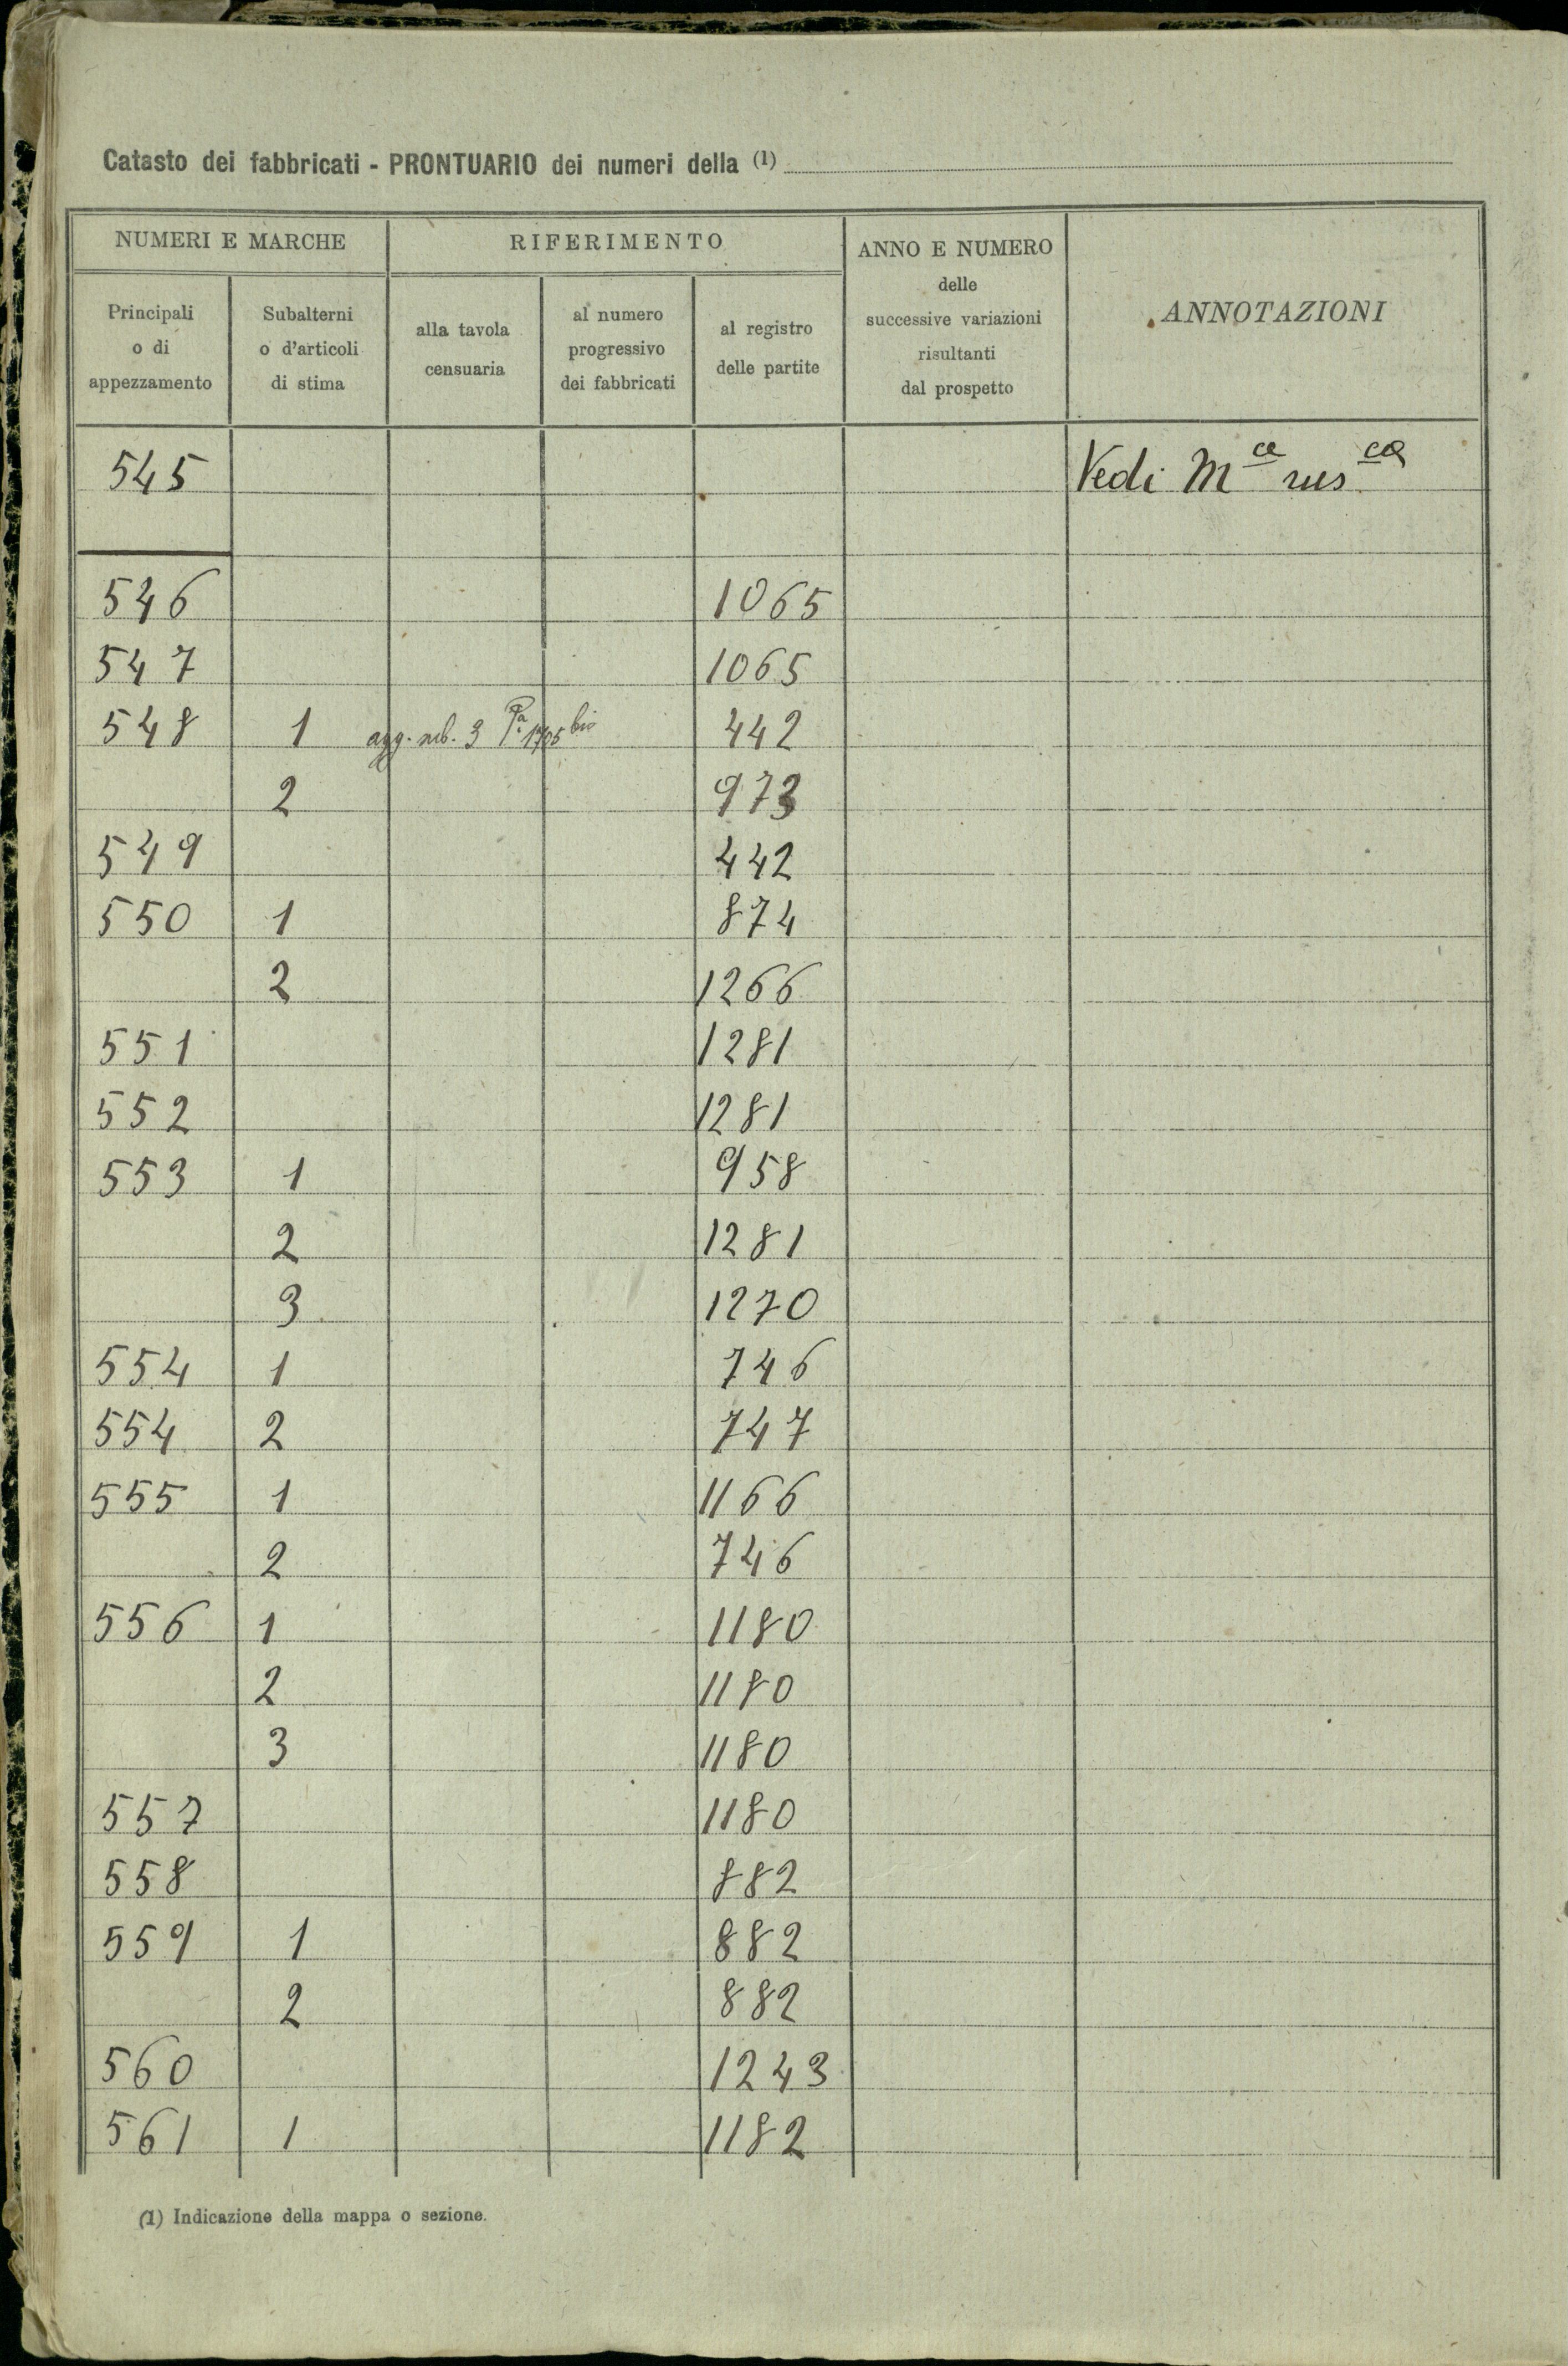 Catasto dei fabbricati - PRONTUARIO dei numeri della (1)
NUMERI E MARCHE RIFERIMENTO ANNO E NUMERO delle successive variazioni risultanti dal prospetto ANNOTAZIONI
Principali o di appezzamento Subalterni o d'articoli di stima alla tavola censuaria al numero progressivo dei fabbricati al registro delle partite
545 Vedi M ce rus ca
546 1065
547 1065
548 1 agg. sub. 3 Pa. 1705 bis 442
2 973
549 442
550 1 874
2 1266
551 1281
552 1281
553 1 958
2 1281
3 1270
554 1 746
554 2 747
555 1 1166
2 746
556 1 1180
2 1180
3 1180
557 1180
558 882
559 1 882
2 882
560 1243
561 1 1182
(1) Indicazione della mappa o sezione.